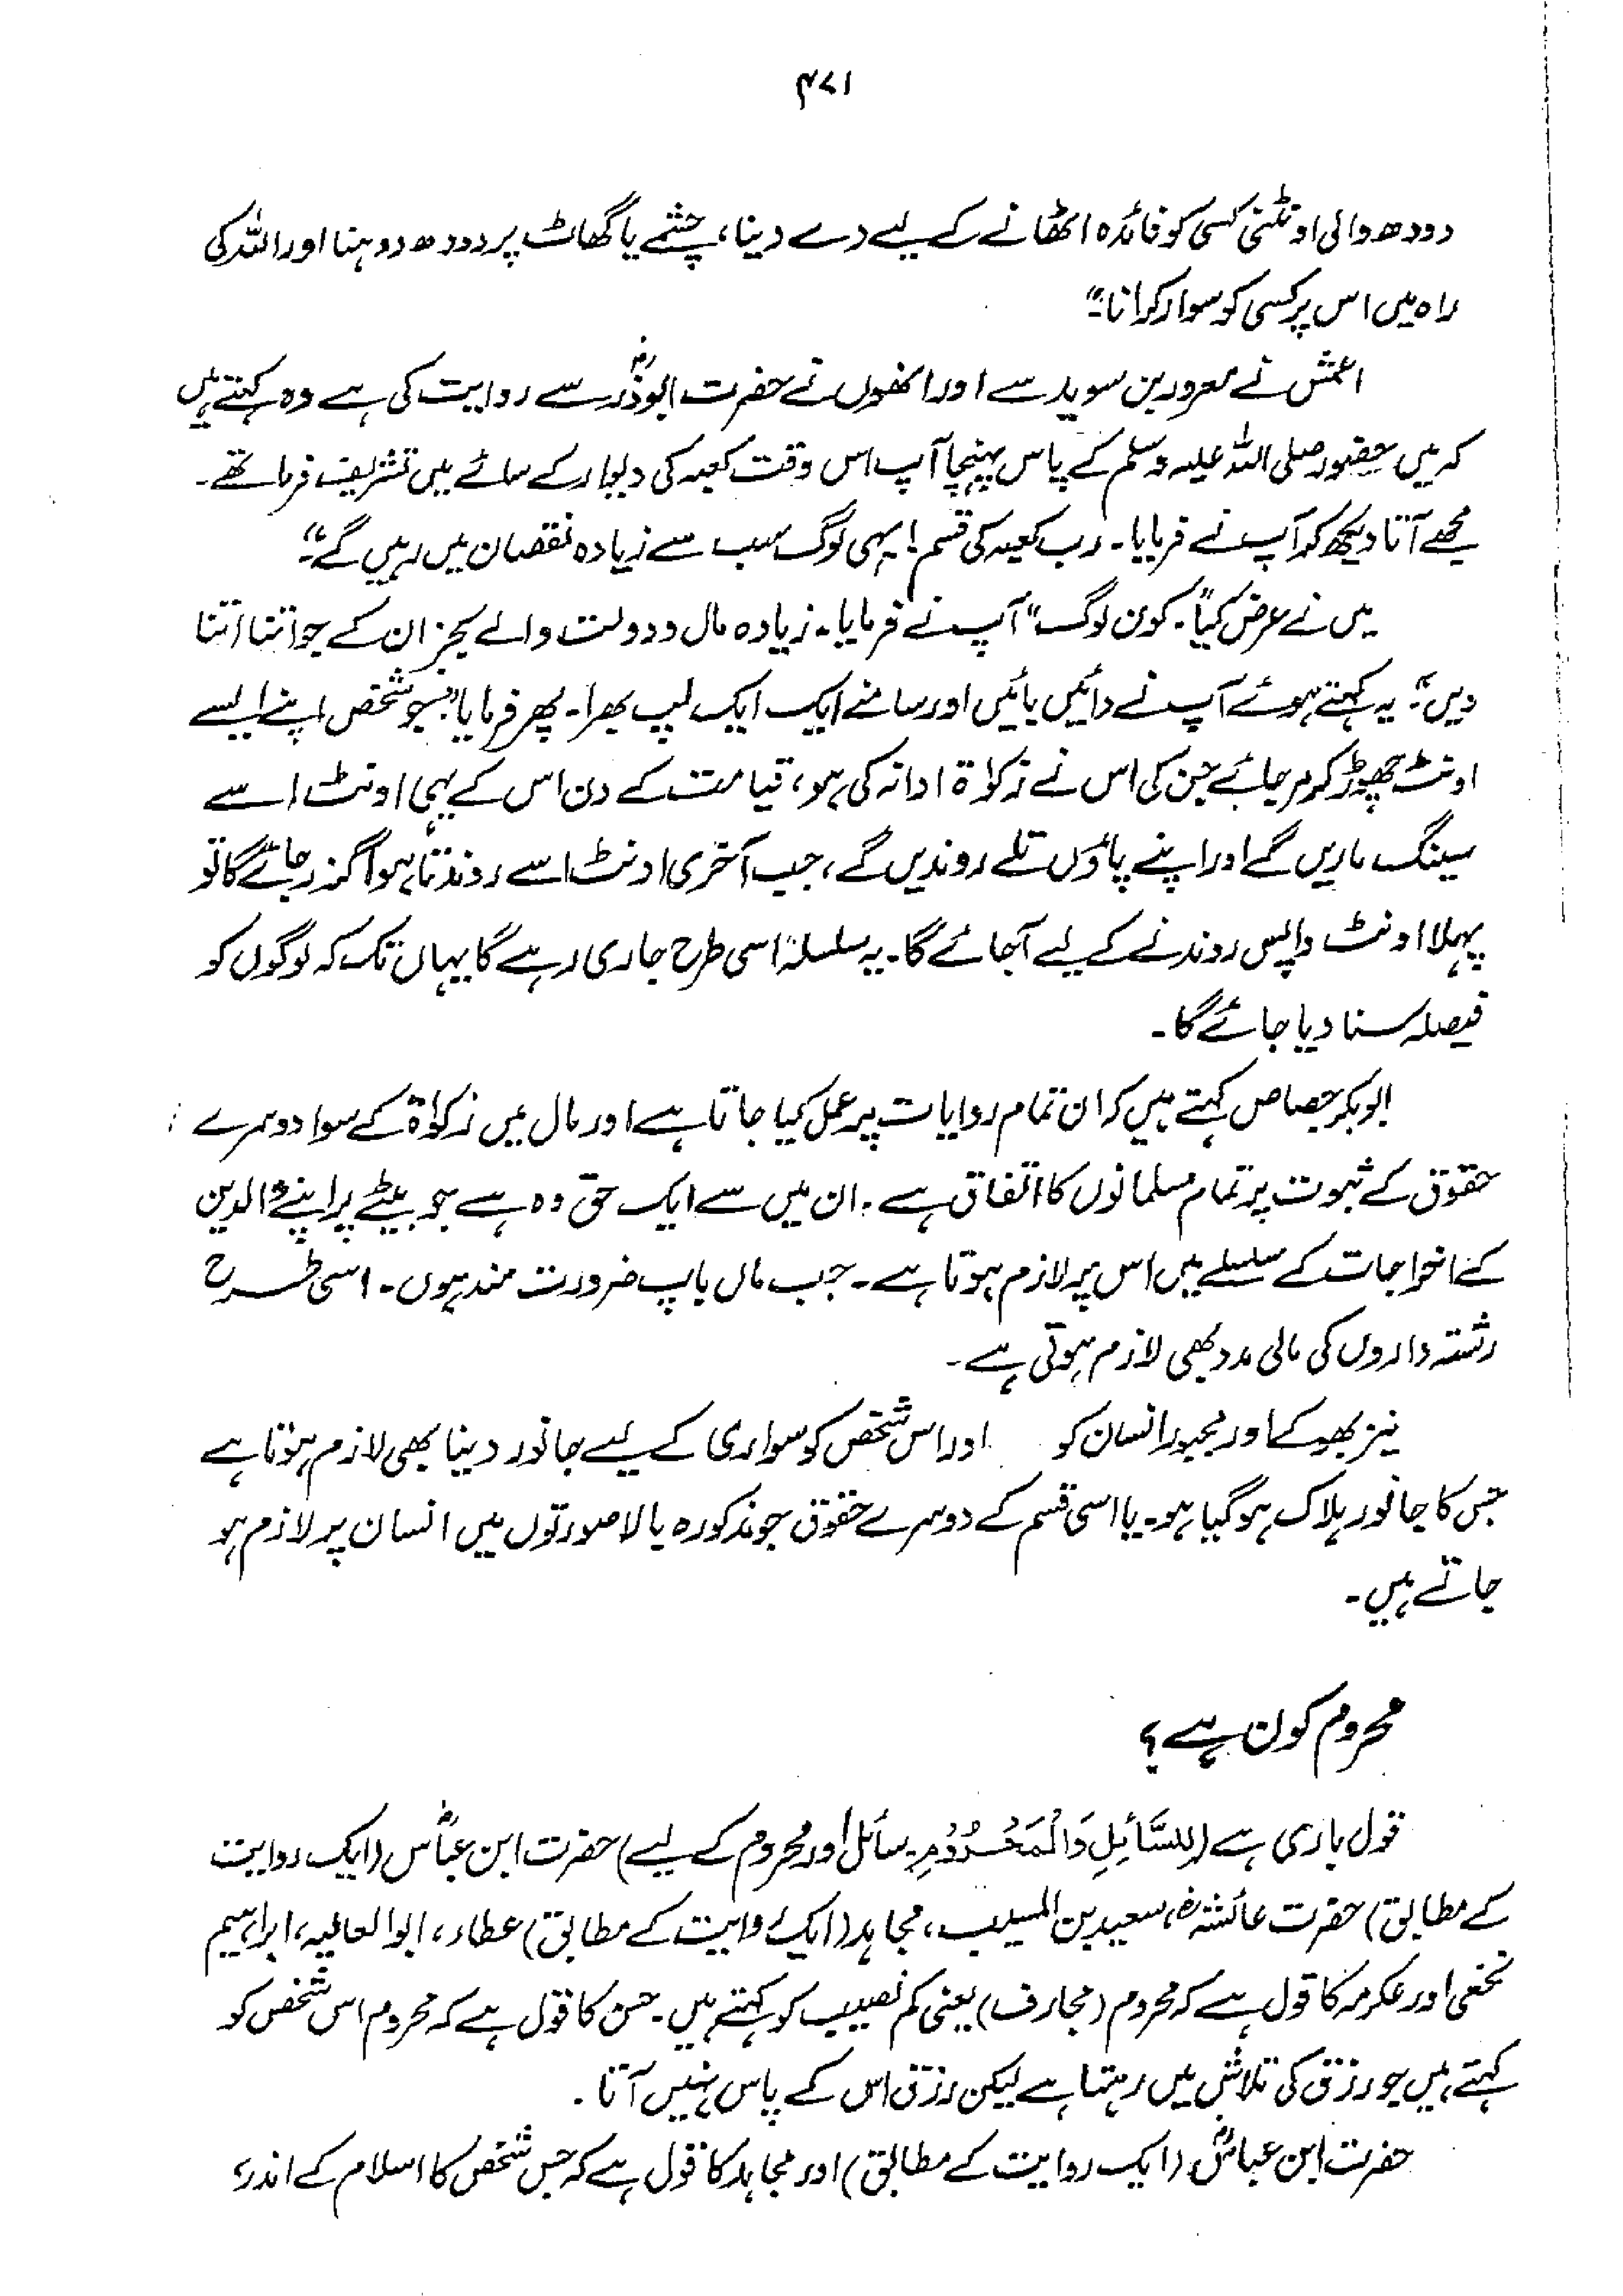 ۴۷۱
دودھ والی اونٹنی کسی کو فائدہ اٹھانے کے لیے دے دینا، چشمے یا گھاٹ پر دودھ دوہنا اور اللہ کی
راہ میں اس پر کسی کو سوار کرانا۔"
اعمش نے معرور بن سوید سے اور انھوں نے حضرت ابوذرؓ سے روایت کی ہے وہ کہتے ہیں
کہ میں حضور صلی اللہ علیہ وسلم کے پاس پہنچا آپ اس وقت کعبہ کی دیوار کے سائے میں تشریف فرما تھے۔
مجھے آتا دیکھ کر آپ نے فرمایا۔ رب کعبہ کی قسم! یہی لوگ سب سے زیادہ نقصان میں رہیں گے"۔
میں نے عرض کیا"۔ کون لوگ" آپ نے فرمایا۔ زیادہ مال و دولت والے بجز ان کے جو اتنا اتنا
دیں"۔ یہ کہتے ہوئے آپ نے دائیں بائیں اور سامنے ایک ایک لپ بھرا۔ پھر فرمایا" جو شخص اپنے ایسے
اونٹ چھوڑ کر مر جائے جن کی اس نے زکواۃ ادا نہ کی ہو، قیامت کے دن اس کے یہی اونٹ اسے
سینگ ماریں گے اور اپنے پاؤں تلے روندیں گے، جب آخری اونٹ اسے روندتا ہوا گزر جائے گا تو
پہلا اونٹ واپس روندنے کے لیے آجائے گا۔ یہ سلسلہ اسی طرح جاری رہے گا یہاں تک کہ لوگوں کو
فیصلہ سنا دیا جائے گا۔
ابوبکر جصاص کہتے ہیں کہ ان تمام روایات پر عمل کیا جاتا ہے اور مال میں زکواۃ کے سوا دوسرے
حقوق کے ثبوت پر تمام مسلمانوں کا اتفاق ہے۔ ان میں سے ایک حق وہ ہے جو بیٹے پر اپنے والدین
کے اخراجات کے سلسلے میں اس پر لازم ہوتا ہے۔ جب ماں باپ ضرورت مند ہوں۔ اسی طرح
رشتہ داروں کی مالی مدد بھی لازم ہوتی ہے۔
نیز بھوکے اور مجبور انسان کو اور اس شخص کو سواری کے لیے جانور دینا بھی لازم ہوتا ہے
جس کا جانور ہلاک ہو گیا ہو۔ یا اسی قسم کے دوسرے حقوق جو مذکورہ بالا صورتوں میں انسان پر لازم ہو
جاتے ہیں۔
محروم کون ہے؟
قول باری ہے (لِلسَّائِلِ وَالْمَحْرُوْمِ سائل اور محروم کے لیے) حضرت ابن عباسؓ (ایک روایت
کے مطابق) حضرت عائشہؓ، سعید بن المسیب، مجاہد (ایک روایت کے مطابق) عطاء، ابوالعالیہ، ابراہیم
نخعی اور عکرمہ کا قول ہے کہ محروم (محارف) یعنی کم نصیب کو کہتے ہیں۔ حسن کا قول ہے کہ محروم اس شخص کو
کہتے ہیں جو رزق کی تلاش میں رہتا ہے لیکن رزق اس کے پاس نہیں آتا۔
حضرت ابن عباسؓ (ایک روایت کے مطابق) اور مجاہد کا قول ہے کہ جس شخص کا اسلام کے اندر